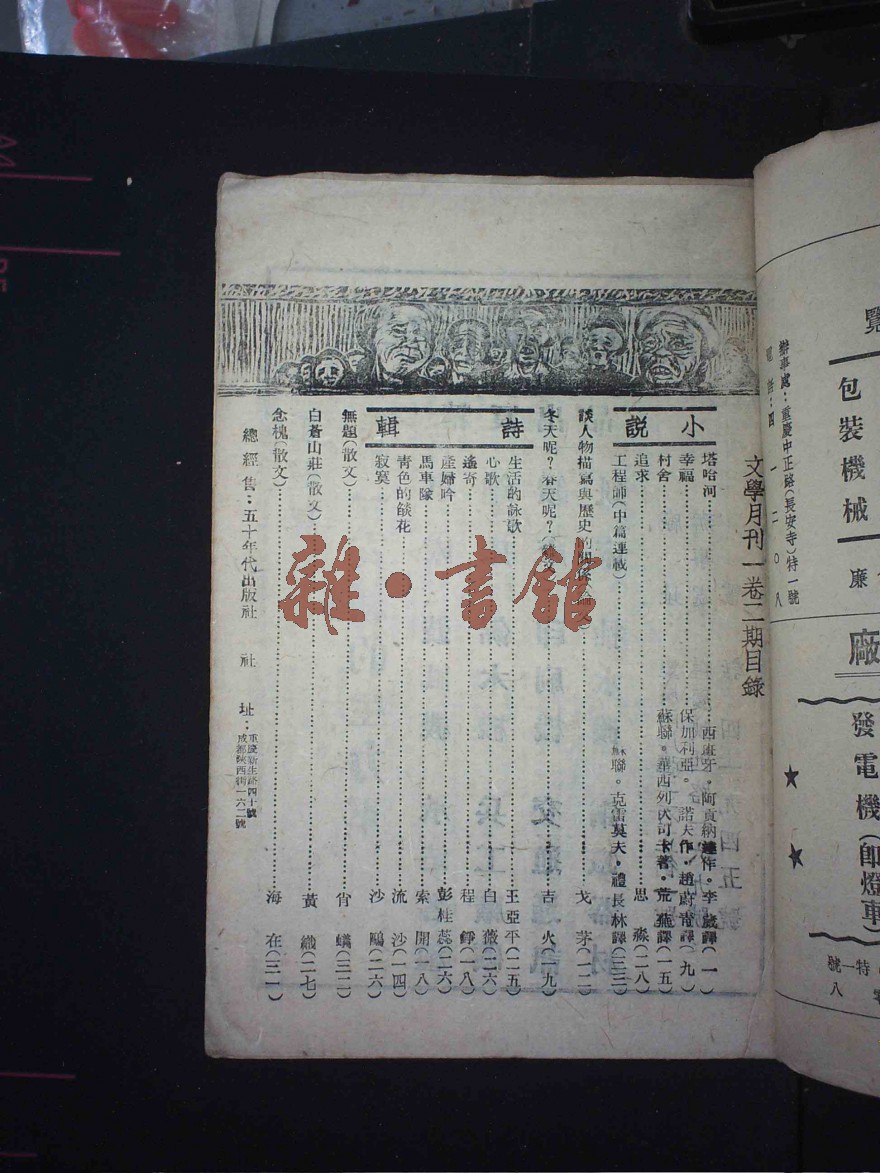 文學月刊一卷二期目錄
小說
塔哈河……西班牙。阿貢納達作。李葳譯(一)
幸福……保加利亞。諾夫作。趙蔚青譯(九)
村舍……蘇聯。華西列夫司卡著。荒蕪譯(一五)
追求……思淼(二八)
工程師(中篇連載)……聯。克雷莫夫。禮長林譯(三三)
談人物描寫與歷史的關係……戈茅(一二)
冬天呢?春天呢?……吉火(一九)
詩輯
生活的詠歌……王亞平(二五)
心歌……白薇(二六)
遙寄……程錚(一八)
產婦吟……彭桂蕊(二六)
馬車隊……索開(一八)
青色的燄花……流沙(一四)
寂寞……沙鷗(二六)
無題(散文)……宵蟎(三二)
白蒼山莊(散文)……黃織(二七)
念槐(散文)……海在(三一)
總經售:五十年代出版社
社址:重慶新生路四十號
成都陝西街一六二號
雜·書館
辦事處:重慶中正路(長安寺)特一號
電話:四一二〇八
包裝機械
廉
廠
發電機(即燈車)
特一號
八